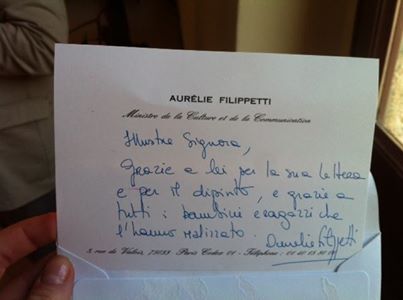 AURÉLIE FILIPPETTI
Ministre de la Culture et de la Communication
Illustre Signora,
Grazie a lei per la sua lettera
e per il dipinto, e grazie a
tutti i bambini e ragazzi che
l'hanno realizzato.
Aurélie Filippetti
3, rue de Valois, 75033 - Paris Cedex 01 - Téléphone : 01 40 15 80